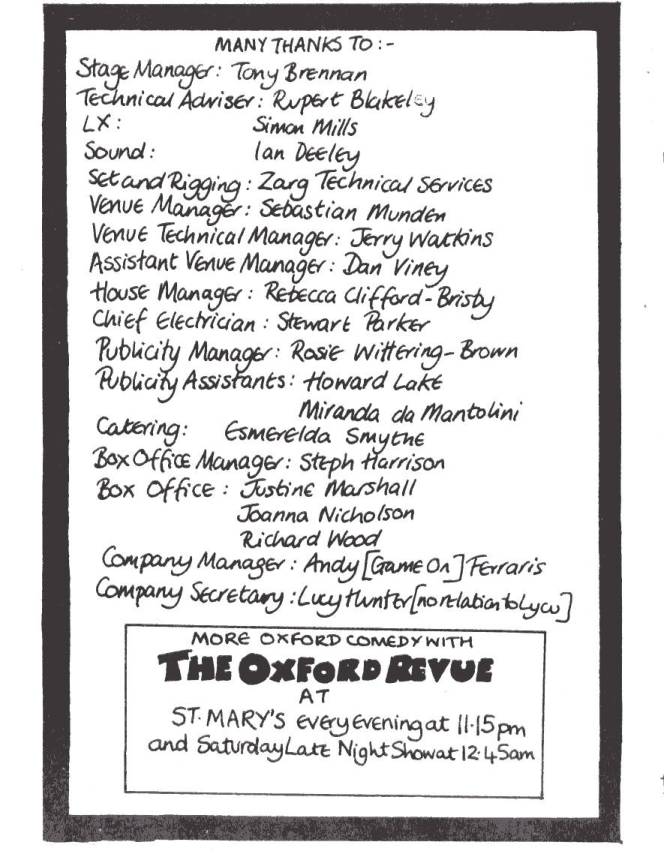 MANY THANKS TO :-
Stage Manager : Tony Brennan
Technical Adviser : Rupert Blakeley
LX : Simon Mills
Sound : Ian Deeley
Set and Rigging : Zarg Technical Services
Venue Manager : Sebastian Munden
Venue Technical Manager : Jerry Watkins
Assistant Venue Manager : Dan Viney
House Manager : Rebecca Clifford-Bristy
Chief Electrician : Stewart Parker
Publicity Manager : Rosie Wittering-Brown
Publicity Assistants : Howard Lake
Miranda da Mantolini
Catering : Esmerelda Smythe
Box Office Manager : Steph Harrison
Box Office : Justine Marshall
Joanna Nicholson
Richard Wood
Company Manager : Andy [Game On] Ferraris
Company Secretary : Lucy Hunter [no relation to Lycu]
MORE OXFORD COMEDY WITH
THE OXFORD REVUE
AT
ST. MARY'S every evening at 11.15pm
and Saturday Late Night Show at 12.45am